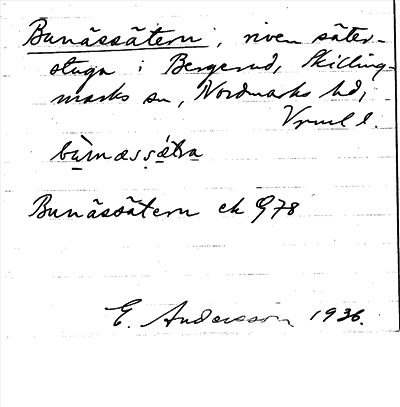 Bunässätern, riven säter-
stuga i Bergerud, Skilling-
marks sn, Nordmarks hd,
Vrml l.
bu̠næsṣætra
Bunässätern ek G78
E. Andersson 1936.